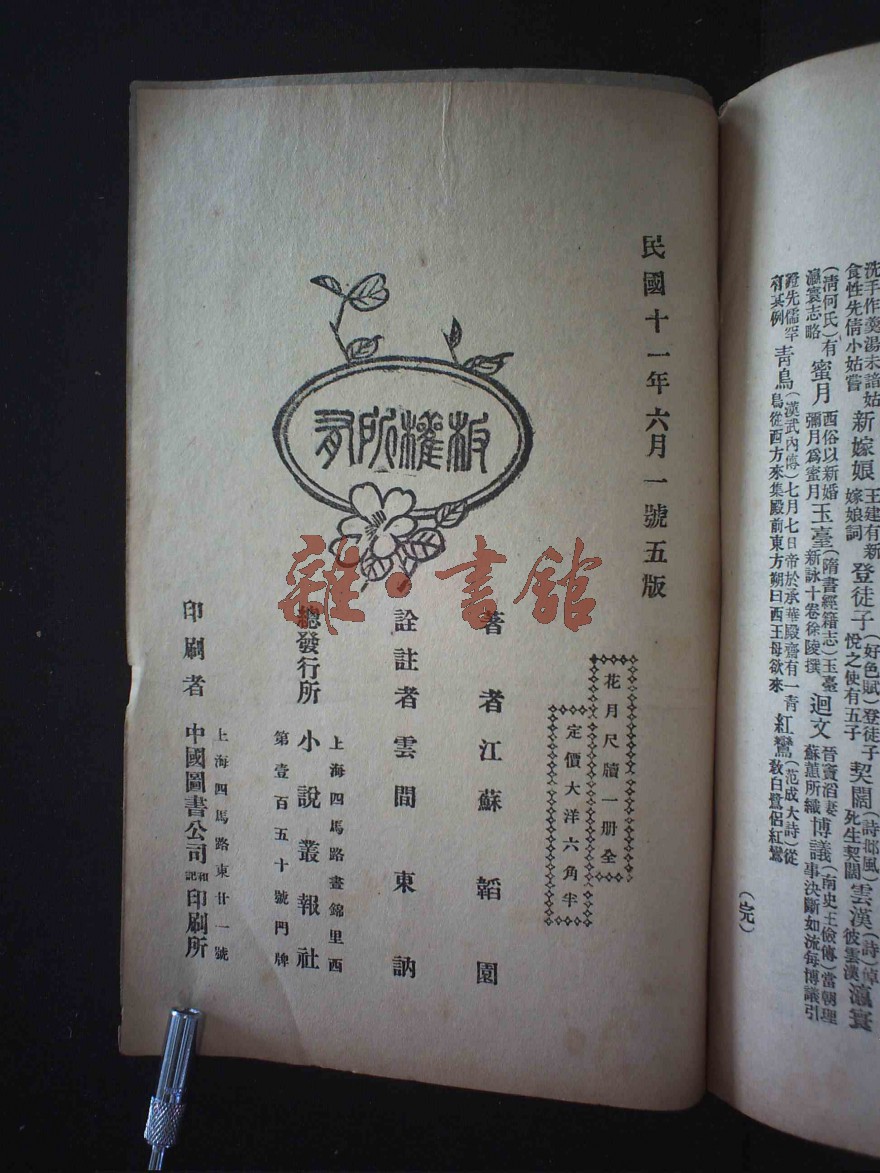 洗手作羹湯未諳姑
食性先倩小姑嘗
新嫁娘
王建有新
嫁娘詞
登徒子
(好色賦)登徒子
悅之使有五子
契闊
(詩邶風)
死生契闊
雲漢
(詩)倬
彼雲漢
瀛寰
(清何氏)有
瀛寰志略
蜜月
西俗以新婚
彌月爲蜜月
玉臺
(隋書經籍志)玉臺
新詠十卷徐陵撰
迴文
晉竇滔妻
蘇蕙所織
博議
(南史王儉傳)當朝理
事決斷如流每博議引
證先儒罕
有其例
青鳥
(漢武內傳)七月七日帝於承華殿齋有一青
鳥從西方來集殿前東方朔曰西王母欲來
紅鸞
(范成大詩)從
敎白鷺侶紅鸞
(完)
民國十一年六月一號五版
版權所有
花月尺牘一册全
定價大洋六角半
著者江蘇韜園
詮註者雲間東訥
總發行所
上海四馬路晝錦里西
小說叢報社
第壹百五十號門牌
印刷者
上海四馬路東廿一號
中國圖書公司和記印刷所
雜·書館